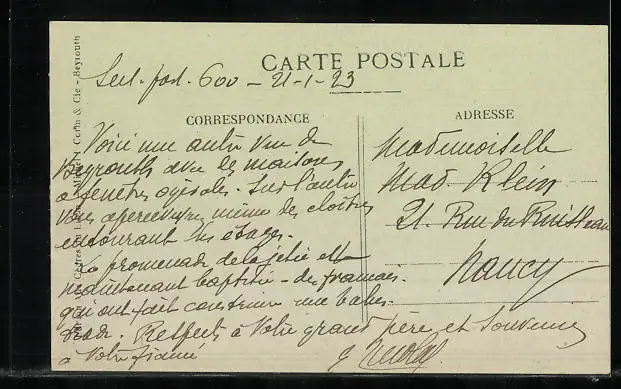 CARTE POSTALE
Sect. post. 600 – 21-1-23
CORRESPONDANCE
Voici une autre vue de
Beyrouth avec les maisons
à fenêtres ogivales. Sur l'autre
vous apercevrez même des cloîtres
entourant les étages.
La promenade de la jetée est
maintenant baptisée – des français.
qui ont fait construire une balus-
trade. Respects à votre grand père et souvenir
à votre fiancé
ADRESSE
Mademoiselle
Mad. Klein
21. Rue du Ruisseau
Nancy
& Cie - Beyrouth